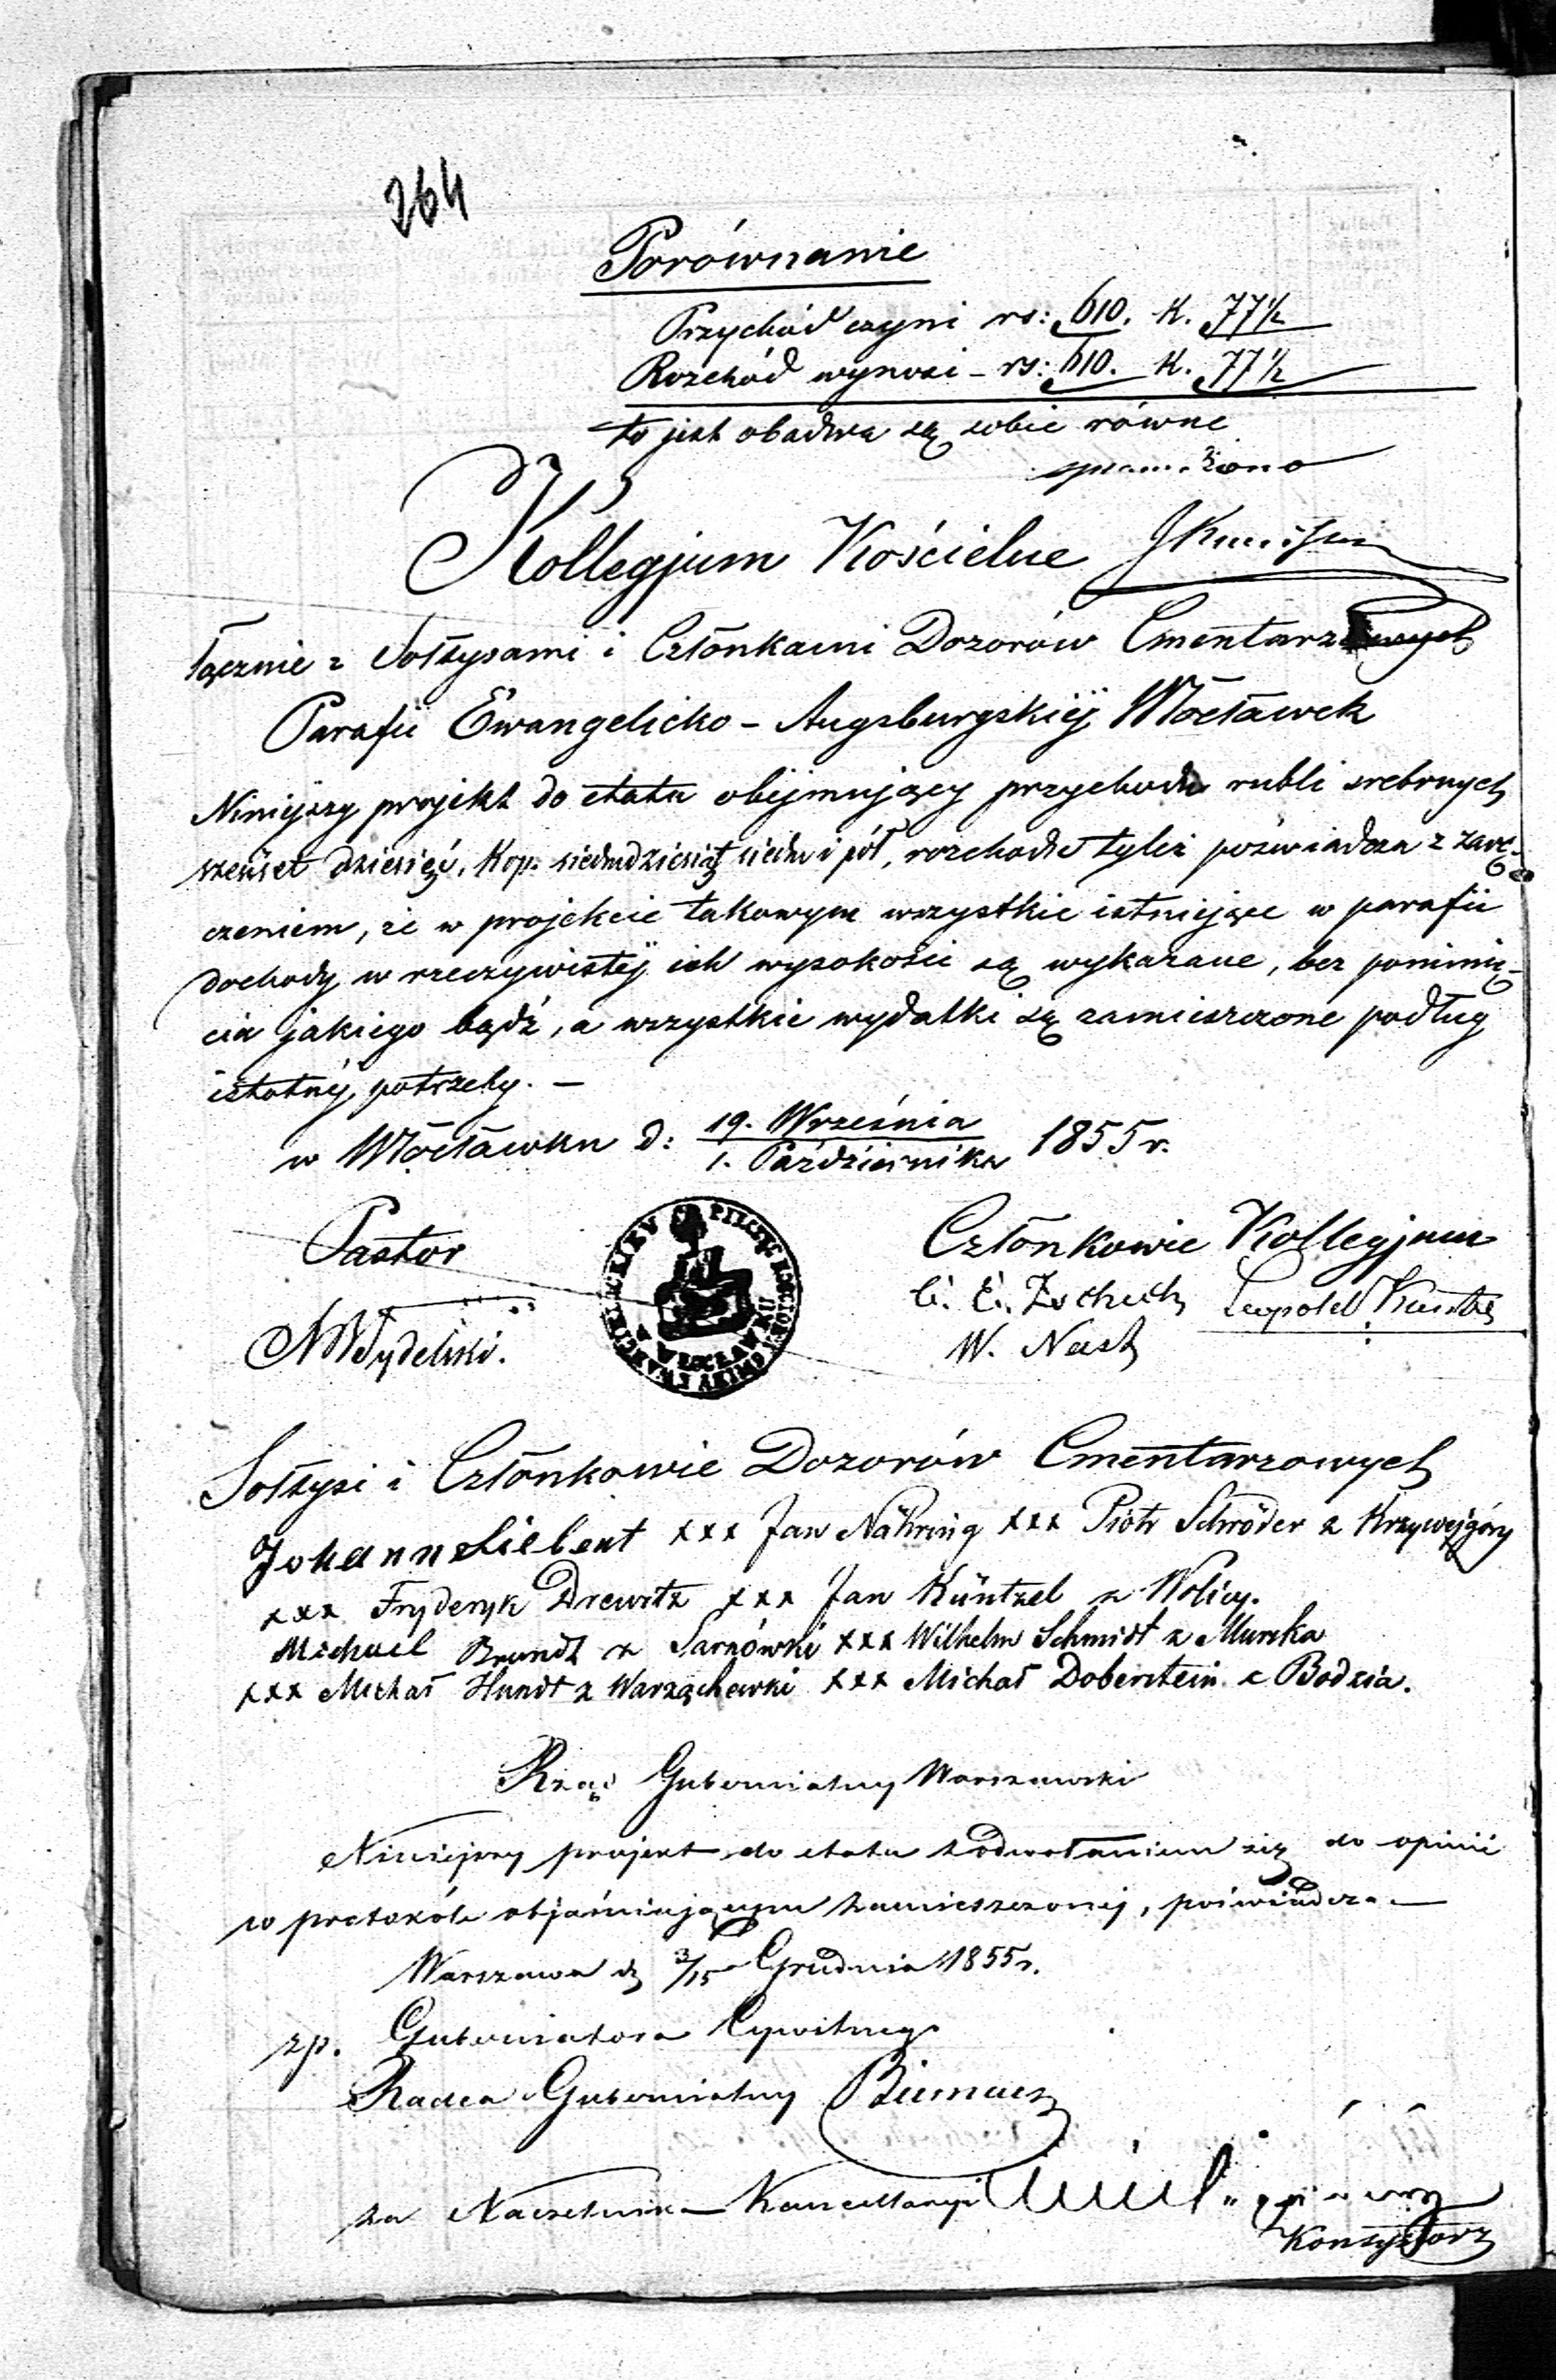 264
Porównanie
Przychód czyni rs: 610. K. 77½
Rozchód wynosi - rs: 610. K. 77½
to jest obadwa są sobie równe
Kollegjum Kościelne
łącznie z Sołtysami i Członkami Dozorów Cmentarzowych
Parafii Ewangelicko - Augsburgskiéj Włocławek
Niniejszy projekt do etatu obejmujący przychodu rubli srebrnych
szećset dziesięć, Kop. siedmdziesiąt siedm i pół, rozchodu tyleż poświadcza z zarę-
czeniem, że w projekcie takowym wszystkie istniejące w parafii
dochody w rzeczywistéj ich wysokości są wykazane, bez pominię-
cia jakiego bądź, a wszystkie wydatki są zamieszczone podług
istotnéj potrzeby. -
w Włocławku d: 19. Września / 1. Października 1855 r.
Pastor
Członkowie Kollegjum
Leopold
W. Nast
WŁOCŁAWKU
Sołtysi i Członkowie Dozorów Cmentarzowych
Johann Liebert xxx Jan Nähring xxx Piotr Schröder z Krzywejgóry
xxx Fryderyk Drewitz xxx Jan Küntzel z Wolicy.
Michael Brandt z Sarnówki xxx Wilhelm Schmidt z Murska
xxx Michał Hundt z Warząchewki xxx Michał Doberstein z Bodzia.
Rząd Gubernialny Warszawski
Niniejszy projekt do etatu z odwołaniem się do opinii
w protokóle objaśniającym zamieszczonej, poświadcza -
Warszawa d 3/15 Grudnia 1855 r.
zp. Gubernatora Cywilnego
Radca Gubernialny
za Naczelnika Kancellaryi
Konsystorz